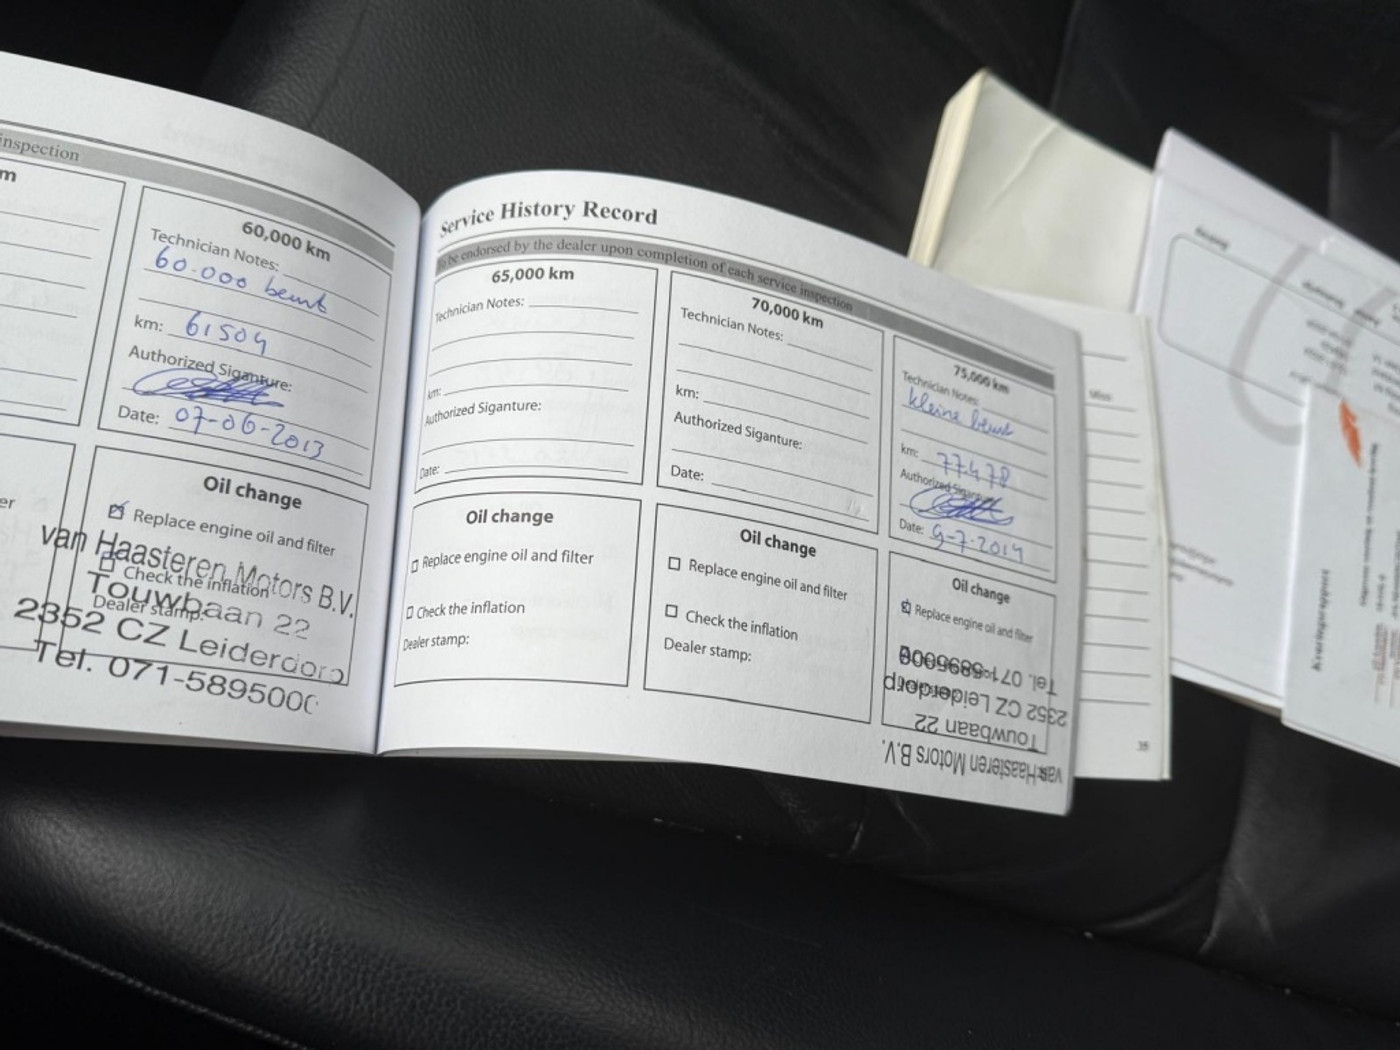 inspection
m
60,000 km
Technician Notes:
60.000 beurt
km: 61504
Authorized Siganture:
Date: 07-06-2013
Oil change
Replace engine oil and filter
Check the inflation
Dealer stamp:
van Haasteren Motors B.V.
Touwbaan 22
2352 CZ Leiderdorp
Tel. 071-5895000
er
Service History Record
To be endorsed by the dealer upon completion of each service inspection
65,000 km
Technician Notes:
km:
Authorized Siganture:
Date:
Oil change
Replace engine oil and filter
Check the inflation
Dealer stamp:
70,000 km
Technician Notes:
km:
Authorized Siganture:
Date:
Oil change
Replace engine oil and filter
Check the inflation
Dealer stamp:
75,000 km
Technician Notes:
kleine beurt
km: 77478
Authorized Siganture:
Date: 9-7-2014
Oil change
Replace engine oil and filter
van Haasteren Motors B.V.
Touwbaan 22
2352 CZ Leiderdorp
Tel. 071-5895000